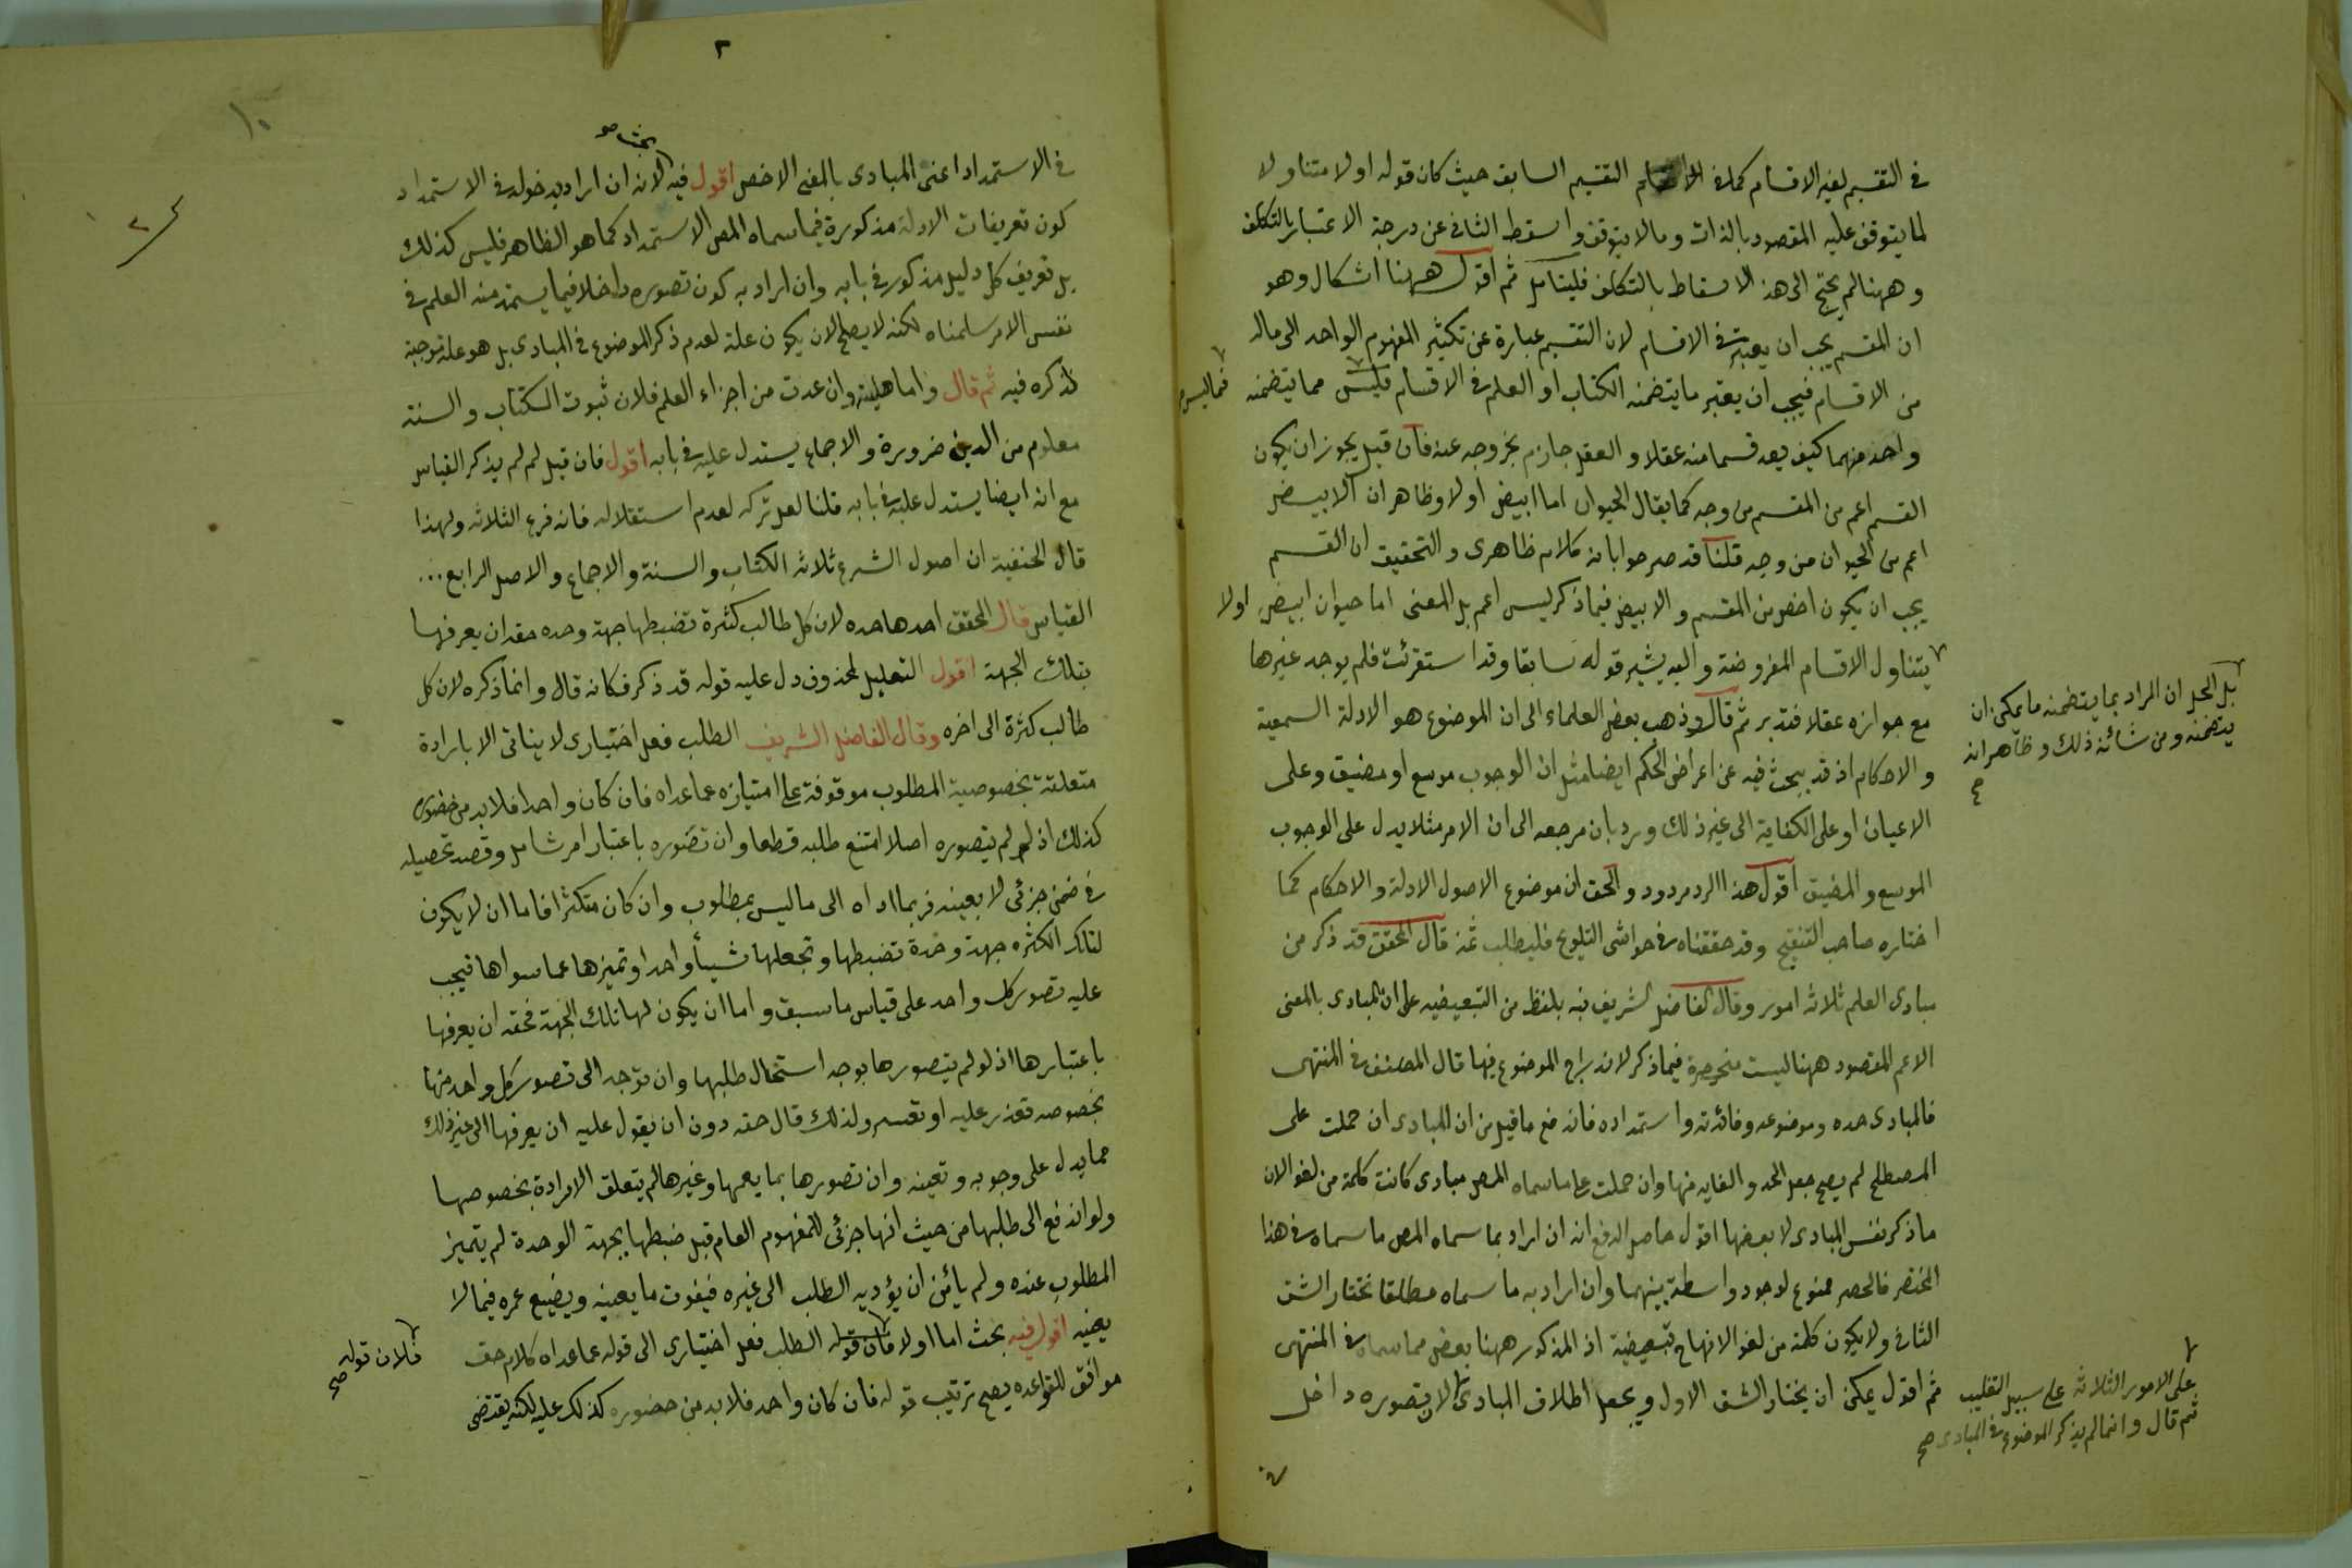 في التقسيم لغير الاقسام كما في التقسيم السابق حيث كان قوله اولا متناولا
لما يتوقف عليه المقصود بالذات وما لا يتوقف واسقط الثاني عن درجة الاعتبار بالتكلف
وههنا لم يحتج الى هذا الاسقاط بالتكلف فليتامل ثم اقول ههنا اشكال وهو
ان المقسم يجب ان يعتبر في الاقسام لان التقسيم عبارة عن تكثير المفهوم الواحد الى ماله
من الاقسام فيجب ان يعتبر ما يتضمنه الكتاب او العلم في الاقسام فليس مما يتضمنه
فما ليس
واحد منهما كيف يعد قسما منه عقلا والعقل جازم بخروجه عنه فان قيل يجوز ان يكون
القسم اعم من المقسم من وجه كما يقال الحيوان اما ابيض اولا وظاهر ان الابيض
اعم من الحيوان من وجه قلنا قد صرحوا بانه كلام ظاهرى والتحقيق ان القسم
يجب ان يكون اخص من المقسم والابيض فيما ذكر ليس اعم بل المعنى اما حيوان ابيض اولا
يتناول الاقسام المفروضة واليه يشير قوله سابقا وقد استقرئت فلم يوجد غيرها
بل الحل ان المراد بما يتضمنه ما يمكن ان
يتضمنه ومن شائنه ذلك وظاهر انه
صح
مع جوازه عقلا فتدبر ثم قال وذهب بعض العلماء الى ان الموضوع هو الادلة السمعية
والاحكام اذ قد يبحث فيه عن اعراض الحكم ايضا مثل ان الوجوب موسع او مضيق وعلى
الاعيان او على الكفاية الى غير ذلك ورد بان مرجعه الى ان الامر مثلا يدل على الوجوب
الموسع والمضيق اقول هذا الرد مردود والحق ان موضوع الاصول الادلة والاحكام كما
اختاره صاحب التنقيح وقد حققناه في حواشى التلويح فليطلب ثمه قال المحقق قد ذكر من
مبادى العلم ثلاثه امور وقال الفاضل الشريف نبه بلفظ من التبعيضيه على ان المبادى بالمعنى
الاعم المقصود ههنا ليست منحصرة فيما ذكر لاندراج الموضوع فيها قال المصنف في المنتهى
فالمبادى حده وموضوعه وفائدته واستمداده فاندفع ما قيل من ان المبادى ان حملت على
المصطلح لم يصح جعل الحد والغايه منها وان حملت على ما سماه المص مبادى كانت كلمة من لغوا لان
ما ذكر نفس المبادى لا بعضها اقول حاصل الدفع انه ان اراد بما سماه المص ما سماه في هذا
المختصر فالحصر ممنوع لوجود واسطة بينهما وان اراد به ما سماه مطلقا نختار الشق
الثاني ولا يكون كلمة من لغوا لانها تبعيضية اذ المذكور ههنا بعض مما سماه في المنتهى
ثم اقول يمكن ان يختار الشق الاول ويجعل اطلاق المبادى لان تصوره داخل
على الامور الثلاثه على سبيل التغليب
ثم قال وانما لم يذكر الموضوع في المبادى صح
٢
١٠
في الاستمداد اعنى المبادى بالمعنى الاخص اقول فيه لانه ان اراد بدخوله في الاستمداد
بحث صح
كون تعريفات الادلة مذكورة فيما سماه المص الاستمداد كما هو الظاهر فليس كذلك
بل تعريف كل دليل مذكور في بابه وان اراد به كون تصوره داخلا فيما يستمد منه العلم في
نفس الامر سلمناه لكنه لا يصلح لان يكون علة لعدم ذكر الموضوع في المبادى بل هو علة موجبة
لذكره فيه ثم قال واما هليته وان عدت من اجزاء العلم فلان ثبوت الكتاب والسنة
معلوم من الدين ضرورة والاجماع يستدل عليه في بابه اقول فان قيل لم لم يذكر القياس
مع انه ايضا يستدل عليه في بابه قلنا لعل تركه لعدم استقلاله فانه فرع الثلاثه ولهذا
قال الحنفية ان اصول الشرع ثلاثه الكتاب والسنة والاجماع والاصل الرابع
القياس قال المحقق احدها حده لان كل طالب كثرة تضبطها جهة وحده حقه ان يعرفها
بتلك الجهة اقول التعليل لمحذوف دل عليه قوله قد ذكر فكانه قال وانما ذكره لان كل
طالب كثرة الى اخره وقال الفاضل الشريف الطلب فعل اختيارى لا يتاتى الا بارادة
متعلقة بخصوصية المطلوب موقوفة على امتيازه عما عداه فان كان واحدا فلا بد من حضوره
كذلك اذ لو لم يتصوره اصلا امتنع طلبه قطعا وان تصوره باعتبار امر شامل وقصد تحصيله
في ضمن جزئى لا بعينه فربما اداه الى ما ليس بمطلوب وان كان متكثرا فاما ان لا يكون
لتلك الكثرة جهة وحدة تضبطها وتجعلها شيئا واحدا وتميزها عما سواها فيجب
عليه تصور كل واحد على قياس ما سبق واما ان يكون لها تلك الجهة فحقه ان يعرفها
باعتبارها اذ لو لم يتصورها بوجه استحال طلبها وان توجه الى تصور كل واحد منها
بخصوصه تعذر عليه او تعسر ولذلك قال حقه دون ان يقول عليه ان يعرفها الى غير ذلك
مما يدل على وجوبه وتعينه وان تصورها بما يعمها وغيرها لم يتعلق الارادة بخصوصها
ولو اندفع الى طلبها من حيث انها جزئى للمفهوم العام قبل ضبطها بجهة الوحدة لم يتميز
المطلوب عنده ولم يأمن ان يؤديه الطلب الى غيره فيفوت ما يعنيه ويضيع عمره فيما لا
يعنيه اقول فيه بحث اما اولا فان قوله الطلب فعل اختيارى الى قوله عما عداه كلام حق
فلان قوله
صح
موافق للقواعد يصح ترتيب قوله فان كان واحد فلا بد من حضوره كذلك عليه لكنه يقتضى